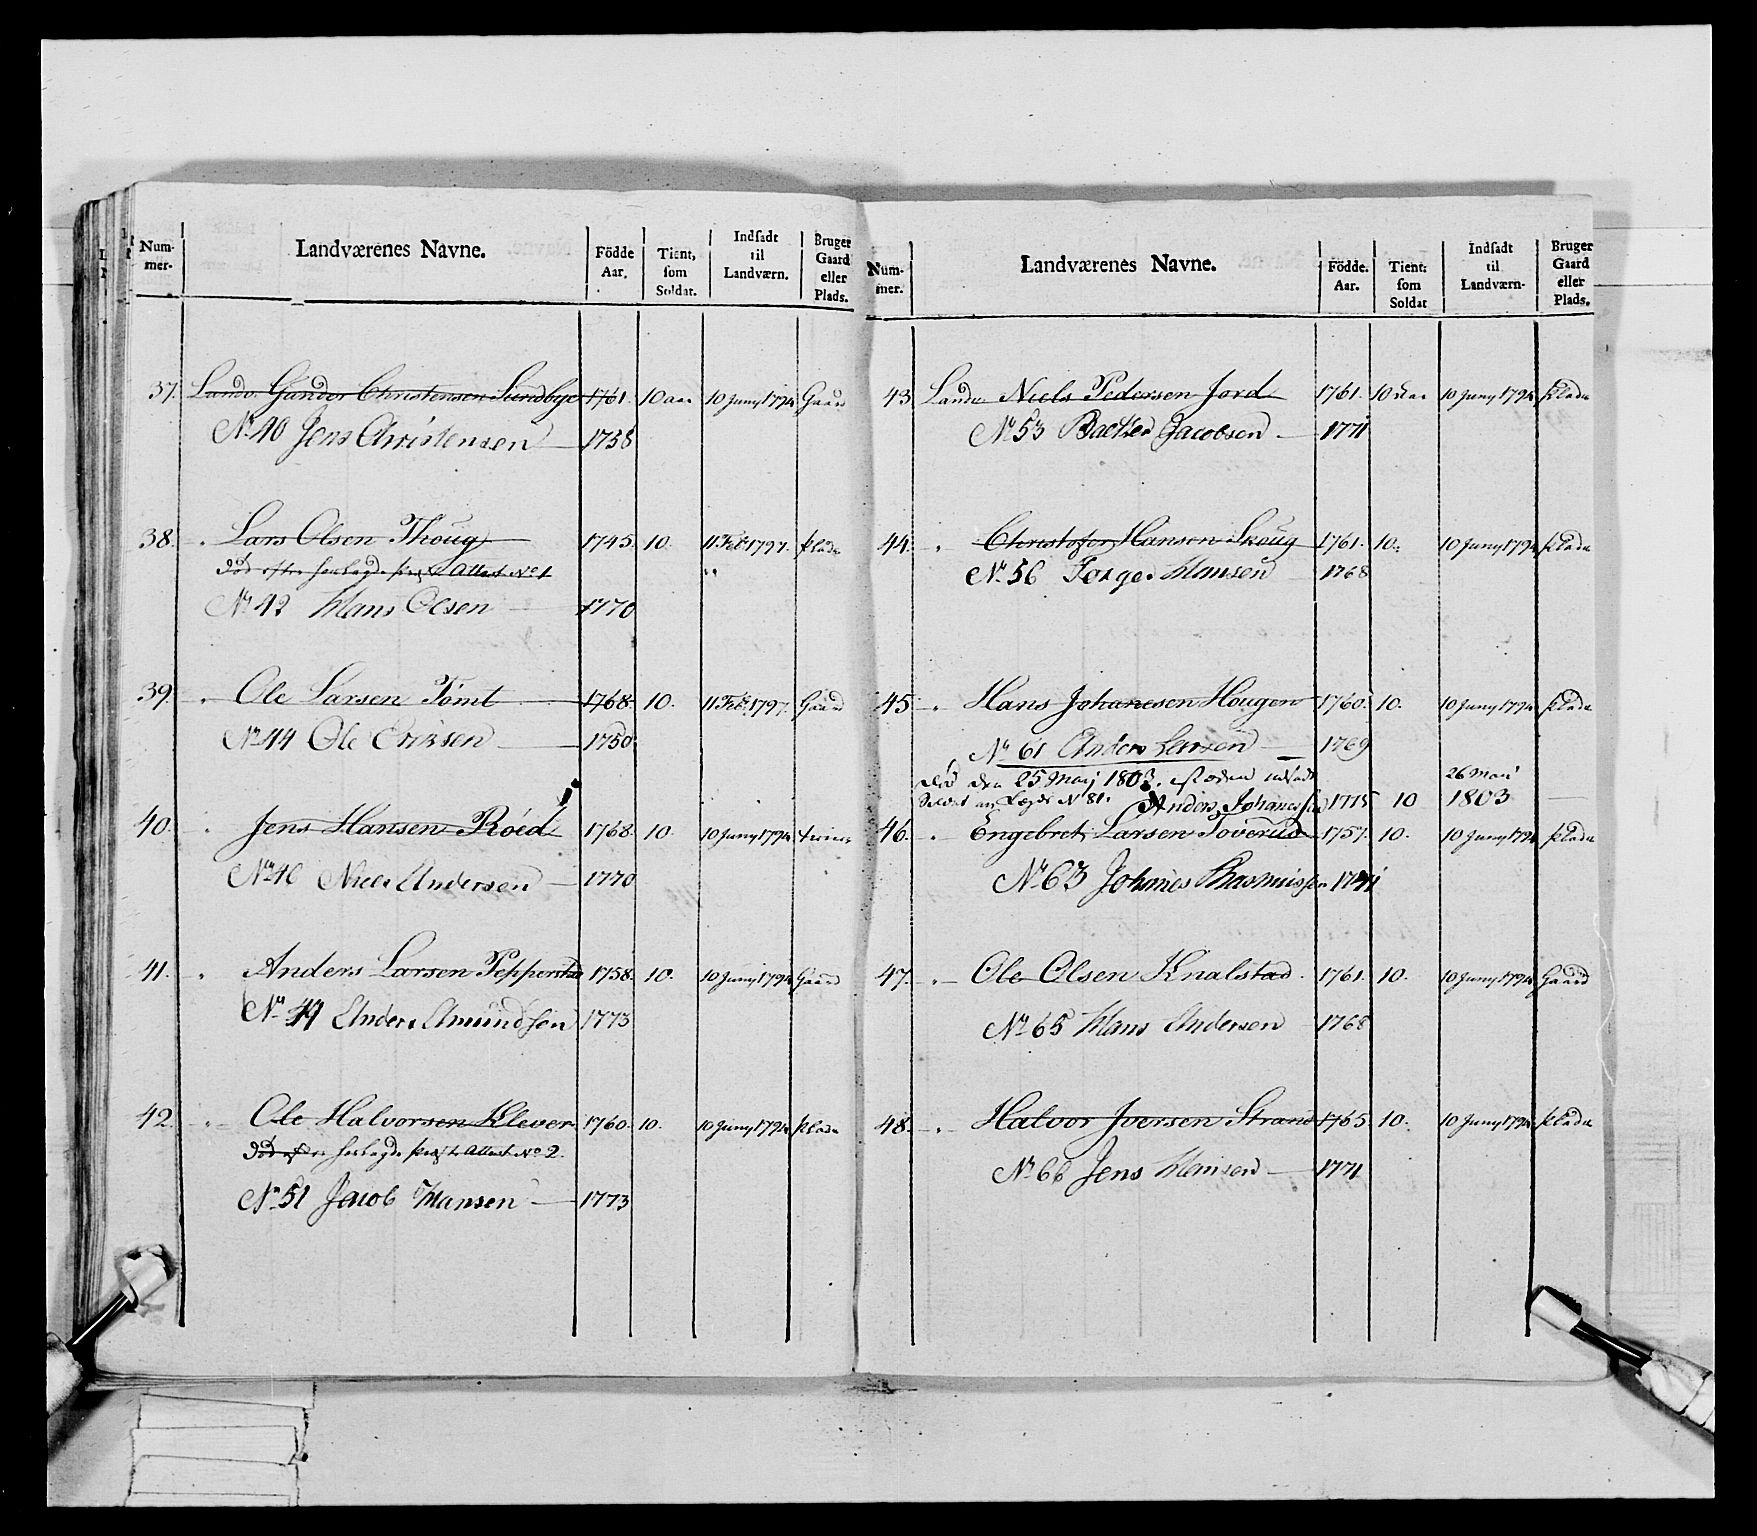 Num-mer. Landværenes Navne. Födde Aar. Tient, som Soldat. Indsadt til Landværn. Bruger Gaard eller Plads.
37. Landv. Gunder Christensen Sundbye 1761. 10 aar 10 Juny 1794 Gaard
No 40 Jens Christensen 1758
38. " Lars Olsen Thoug 1745. 10. 11 Feb 1797. Plads
Død efter Attest No 1
No 42 Hans Olsen 1770
39. " Ole Larsen Tømt 1768. 10. 11 Feb 1797. Gaard
No 44 Ole Ericksen 1750
40. " Jens Hansen Röed 1768. 10. 10 Juny 1794
No 46 Niels Andersen 1770
41. " Anders Larsen Pepperstad 1758. 10. 10 Juny 1794 Gaard
No 49 Anders Amundsen 1773
42. " Ole Halvorsen Klever 1760. 10. 10 Juny 1794 Plads
Død Attest No 2.
No 51 Jacob Hansen 1773
Num-mer. Landværenes Navne. Födde. Aar. Tient: som Soldat Indsadt til Landværn. Bruger Gaard eller Plads.
43 Landv Niels Pedersen Jord 1761. 10 aar 10 Juny 1794 Plads
No 53 Jacobsen 1771
44. " Christofer Hansen Skoug 1761. 10. 10 Juny 1794 Plads
No 56 Torger Hansen 1768
45 " Hans Johanesen Hougen 1760. 10. 10 Juny 1794 Plads
No 61 Anders Larsen 1769
Død den 25 Maj 1803. isteden indsadt 26 Mai
Soldat Lægd N 81. Anders Johannessen 1775 10 1803
46. " Engebret Larsen Toverud 1757. 10. 10 Juny 1794 Plads
No 63 Johanes Rasmussen 1771
47. " Ole Olsen Knalstad. 1761. 10. 10 Juny 1794 Gaard
No 65 Hans Andersen 1768
48. " Halvor Iversen Strand 1765. 10. 10 Juny 1794. Plads
No 66 Jens Hansen 1771